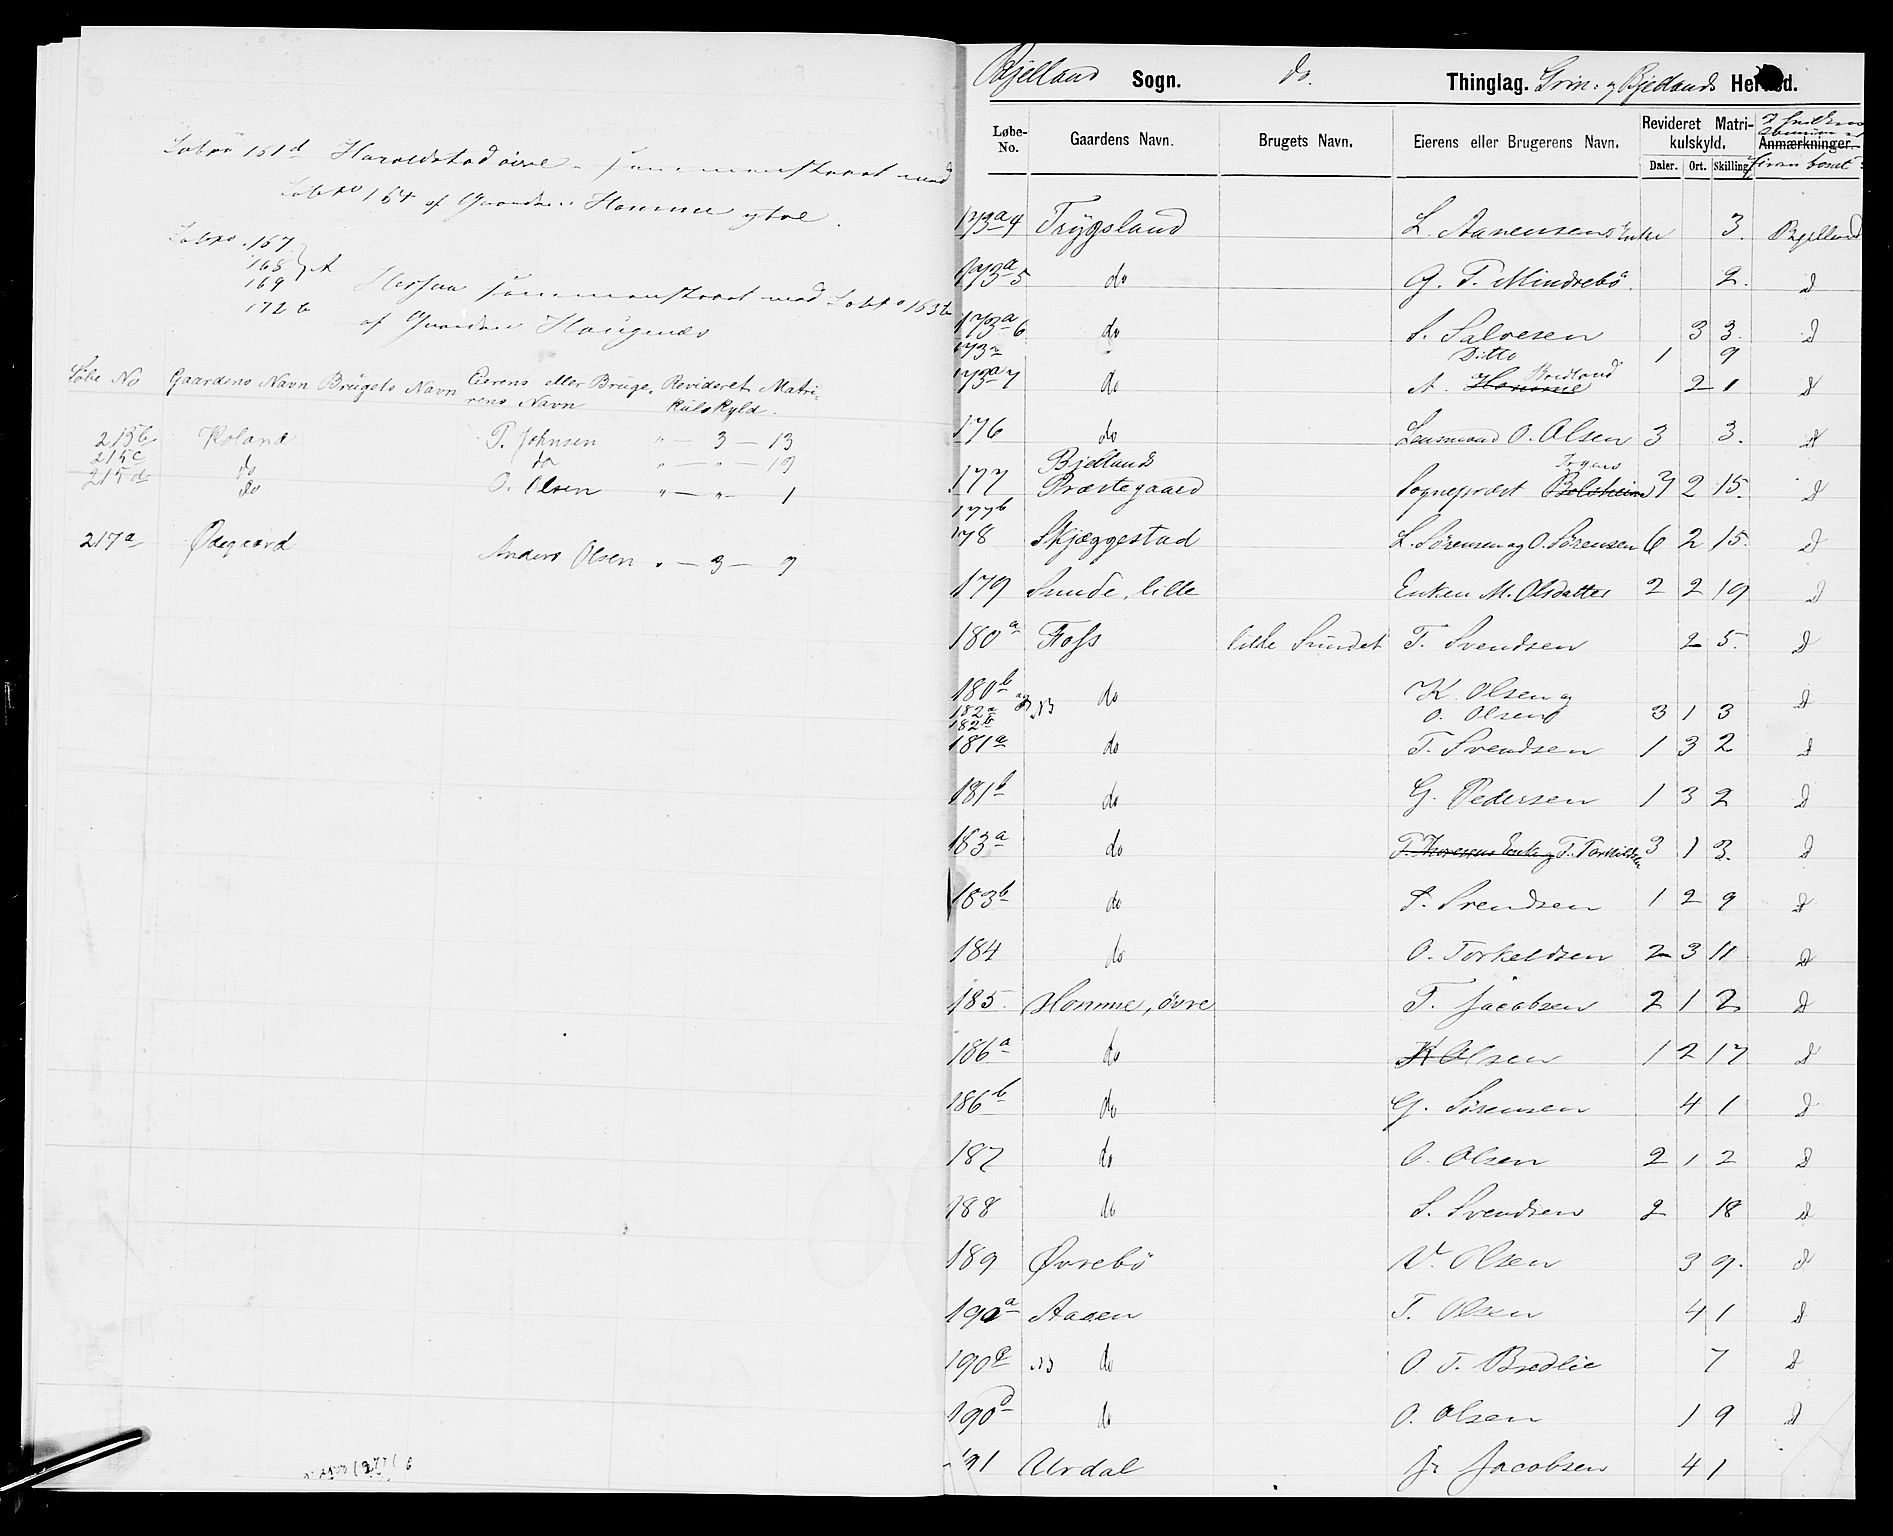 Løbno 151d Haroldstad øvre - sammenskrevet med
Løbno 154 af Gaarden Homme ytre.
Løbno. 167
168 } A
169
172b Hessaa sammenskrevet med Løbno 163b
af Gaarden Hougenes
Løbe No Gaardens Navn Brugets Navn Eierens eller Bruge- Revideret Matri-
rens Navn kulskyld.
215b Roland P. Johnsen " — 3 — 13
215c do do " — " — 19
215d do O. Olsen " — " — 1
217a Ødegaard Anders Olsen " — 3 — 9
Bjelland Sogn. do. Thinglag. Grin: og Bjellands Herred.
Løbe-No. Gaardens Navn. Brugets Navn. Eierens eller Brugerens Navn. Revideret Matrikulskyld. Anmærkninger.
Daler. Ort. Skilling
173a4 Trygsland L. Aanensens Enke 3. Bjelland
173a5 do G. T. Mindrebö. 2. D
173a6 do S. Salvesen 3 3. D
173 Ditto 1 9
173a7 do A. Homme Bredland 2 1 D
176 do Lensmand O. Olsen 3 3. D
177 Bjellands Præstegaard Sognepræst Bolsheim 3 2 15. D
177b
178 Skjæggestad L. Sørensen og O. Sørensen 6 2 15. D
179 Sunde, lille Enken M. Olsdatter 2 2 19 D
180a Foss lille Sundet T. Svendsen 2 5. D
180b og NB do K. Olsen og D
182a
182b O. Olsen 3 1 3
181a do T. Svendsen 1 3 2 D
181b do G. Pedersen 1 3 2 D
183a do T. Thoresens Enke og T. Torkildsen 3 1 3. D
183b do S. Svendsen 1 2 9 D
184 do O. Torkeldsen 2 3 11 D
185. Homme, övre T. Jacobsen 2 1 2 D
186a do K Olsen 1 2 17 D
186b do G. Sörensen 4 1 D
187 do O. Olsen 2 1 2 D
188 do S. Svendsen 2 18 D
189 Øvrebö V. Olsen 3 9. D
190a Aasen T. Olsen 4 1 D
190c NB do O. T. Bredlie 7 D
190d do O. Olsen 1 9 D
191 Urdal Jacobsen 4 1